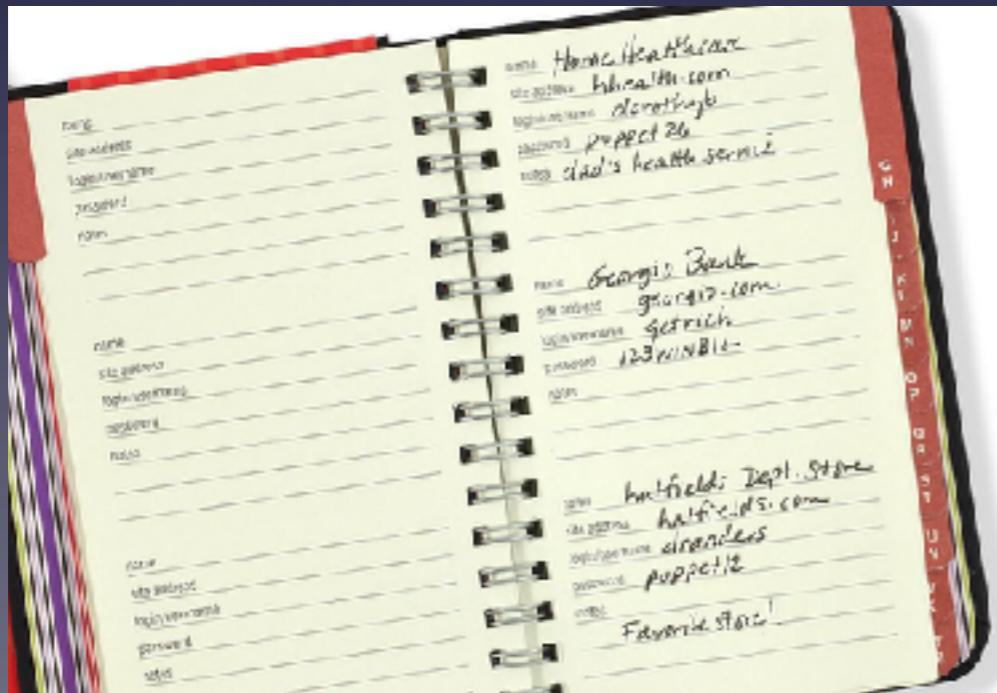 name
site address
login/username
password
notes
name
site address
login/username
password
notes
name
site address
login/username
password
notes
name Home Healthcare
site address hhealth.com
login/username dorothyb
password puppet 26
notes dad's health service
name Georgia Bank
site address georgia.com
login/username getrich
password 123WINBIL
notes
name hatfields Dept. Store
site address hatfields.com
login/username dranders
password puppet12
notes
Favorite store!
GH
IJ
KL
MN
OP
QR
ST
UV
WX
YZ